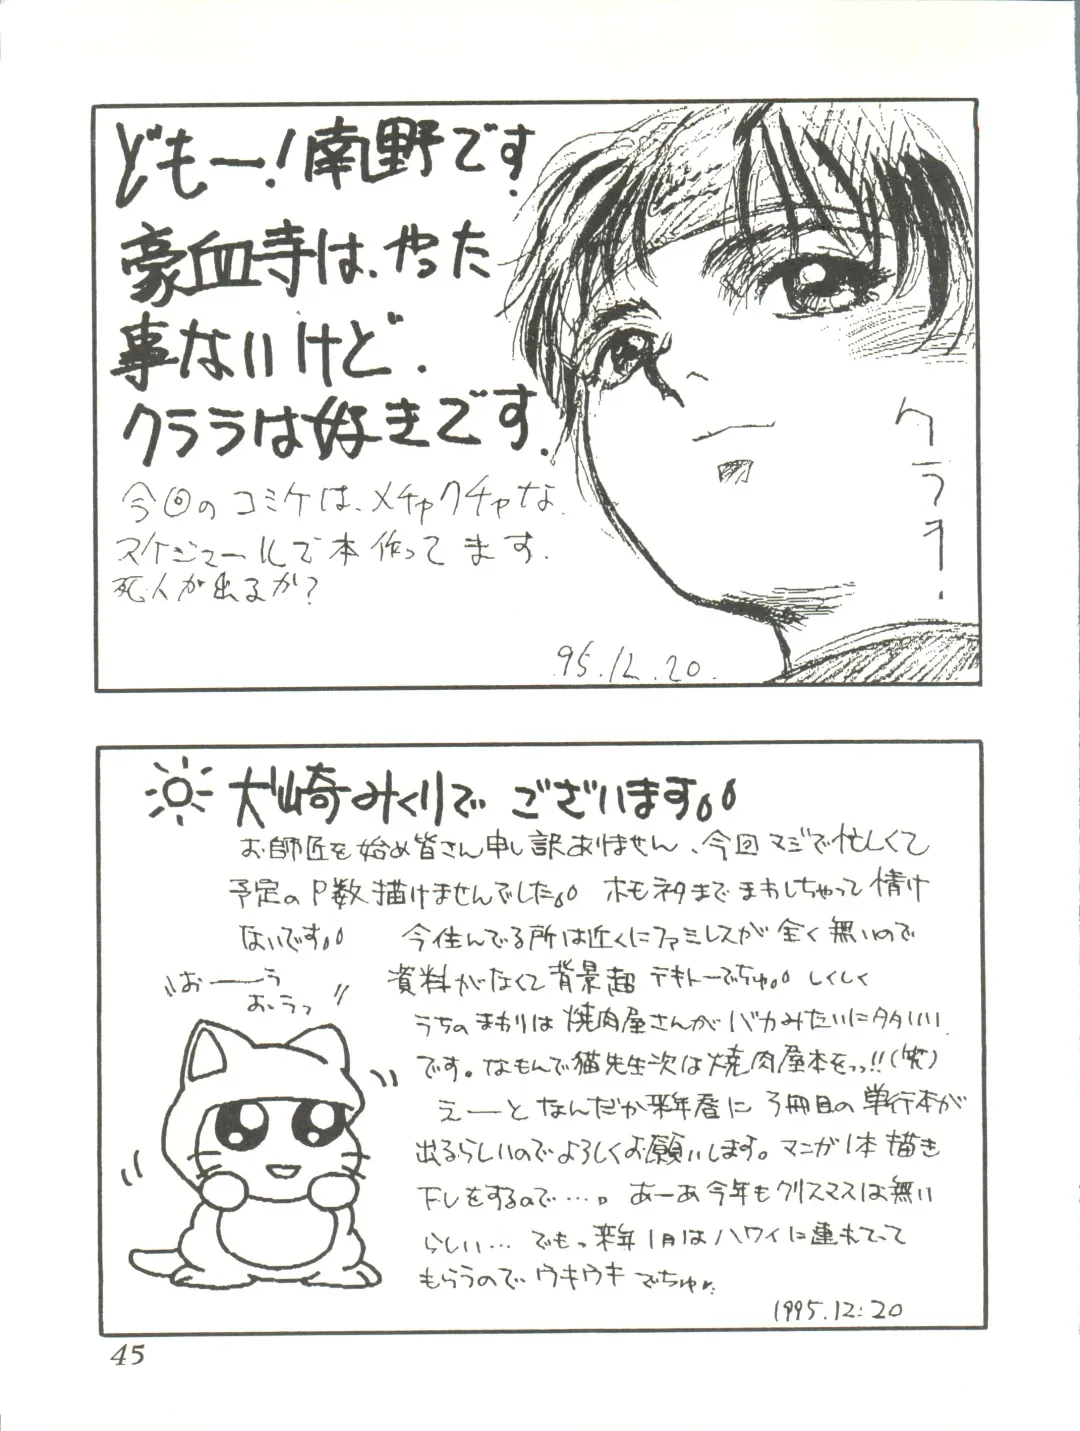 どもー!南野です.
豪血寺は、やった
事ないけど.
クララは好きです.
今回のコミケは、メチャクチャな
スケジュールで本作ってます.
死人が出るか?
クララー.
95.12.20.
犬崎みくりで ございます。
お師匠を始め皆さん申し訳ありません、今回マジで忙しくて
予定のP数描けませんでした。 ホモネタまで まわしちゃって 情け
ないです。 今住んでる所は近くにファミレスが全く無いので
資料がなくて背景超テキトーでちゅ。 しくしく
おーーう
おーうっ
うちのまわりは焼肉屋さんがバカみたいに多いい
です。なもんで猫先生次は焼肉屋本をっっ!!(笑)
えーーと なんだか来年春に 3冊目の単行本が
出るらしいのでよろしくお願いします。マンガ1本描き
下しをするので…。 あーあ今年もクリスマスは無い
らしい… でもっ来年1月はハワイに連れてって
もらうのでウキウキでちゅ
1995.12.20
45